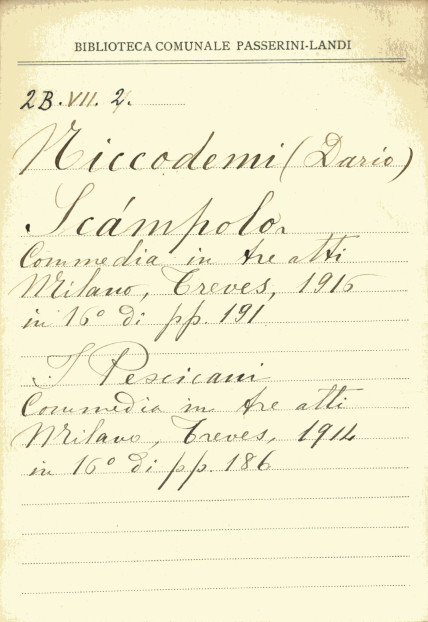 BIBLIOTECA COMUNALE PASSERINI-LANDI
2B.VII. 2.
Niccodemi (Dario)
Scámpolo.
Commedia in tre atti
Milano, Treves, 1916
in 16° di pp. 191
I Pescicani
Commedia in tre atti
Milano, Treves, 1914
in 16° di pp. 186